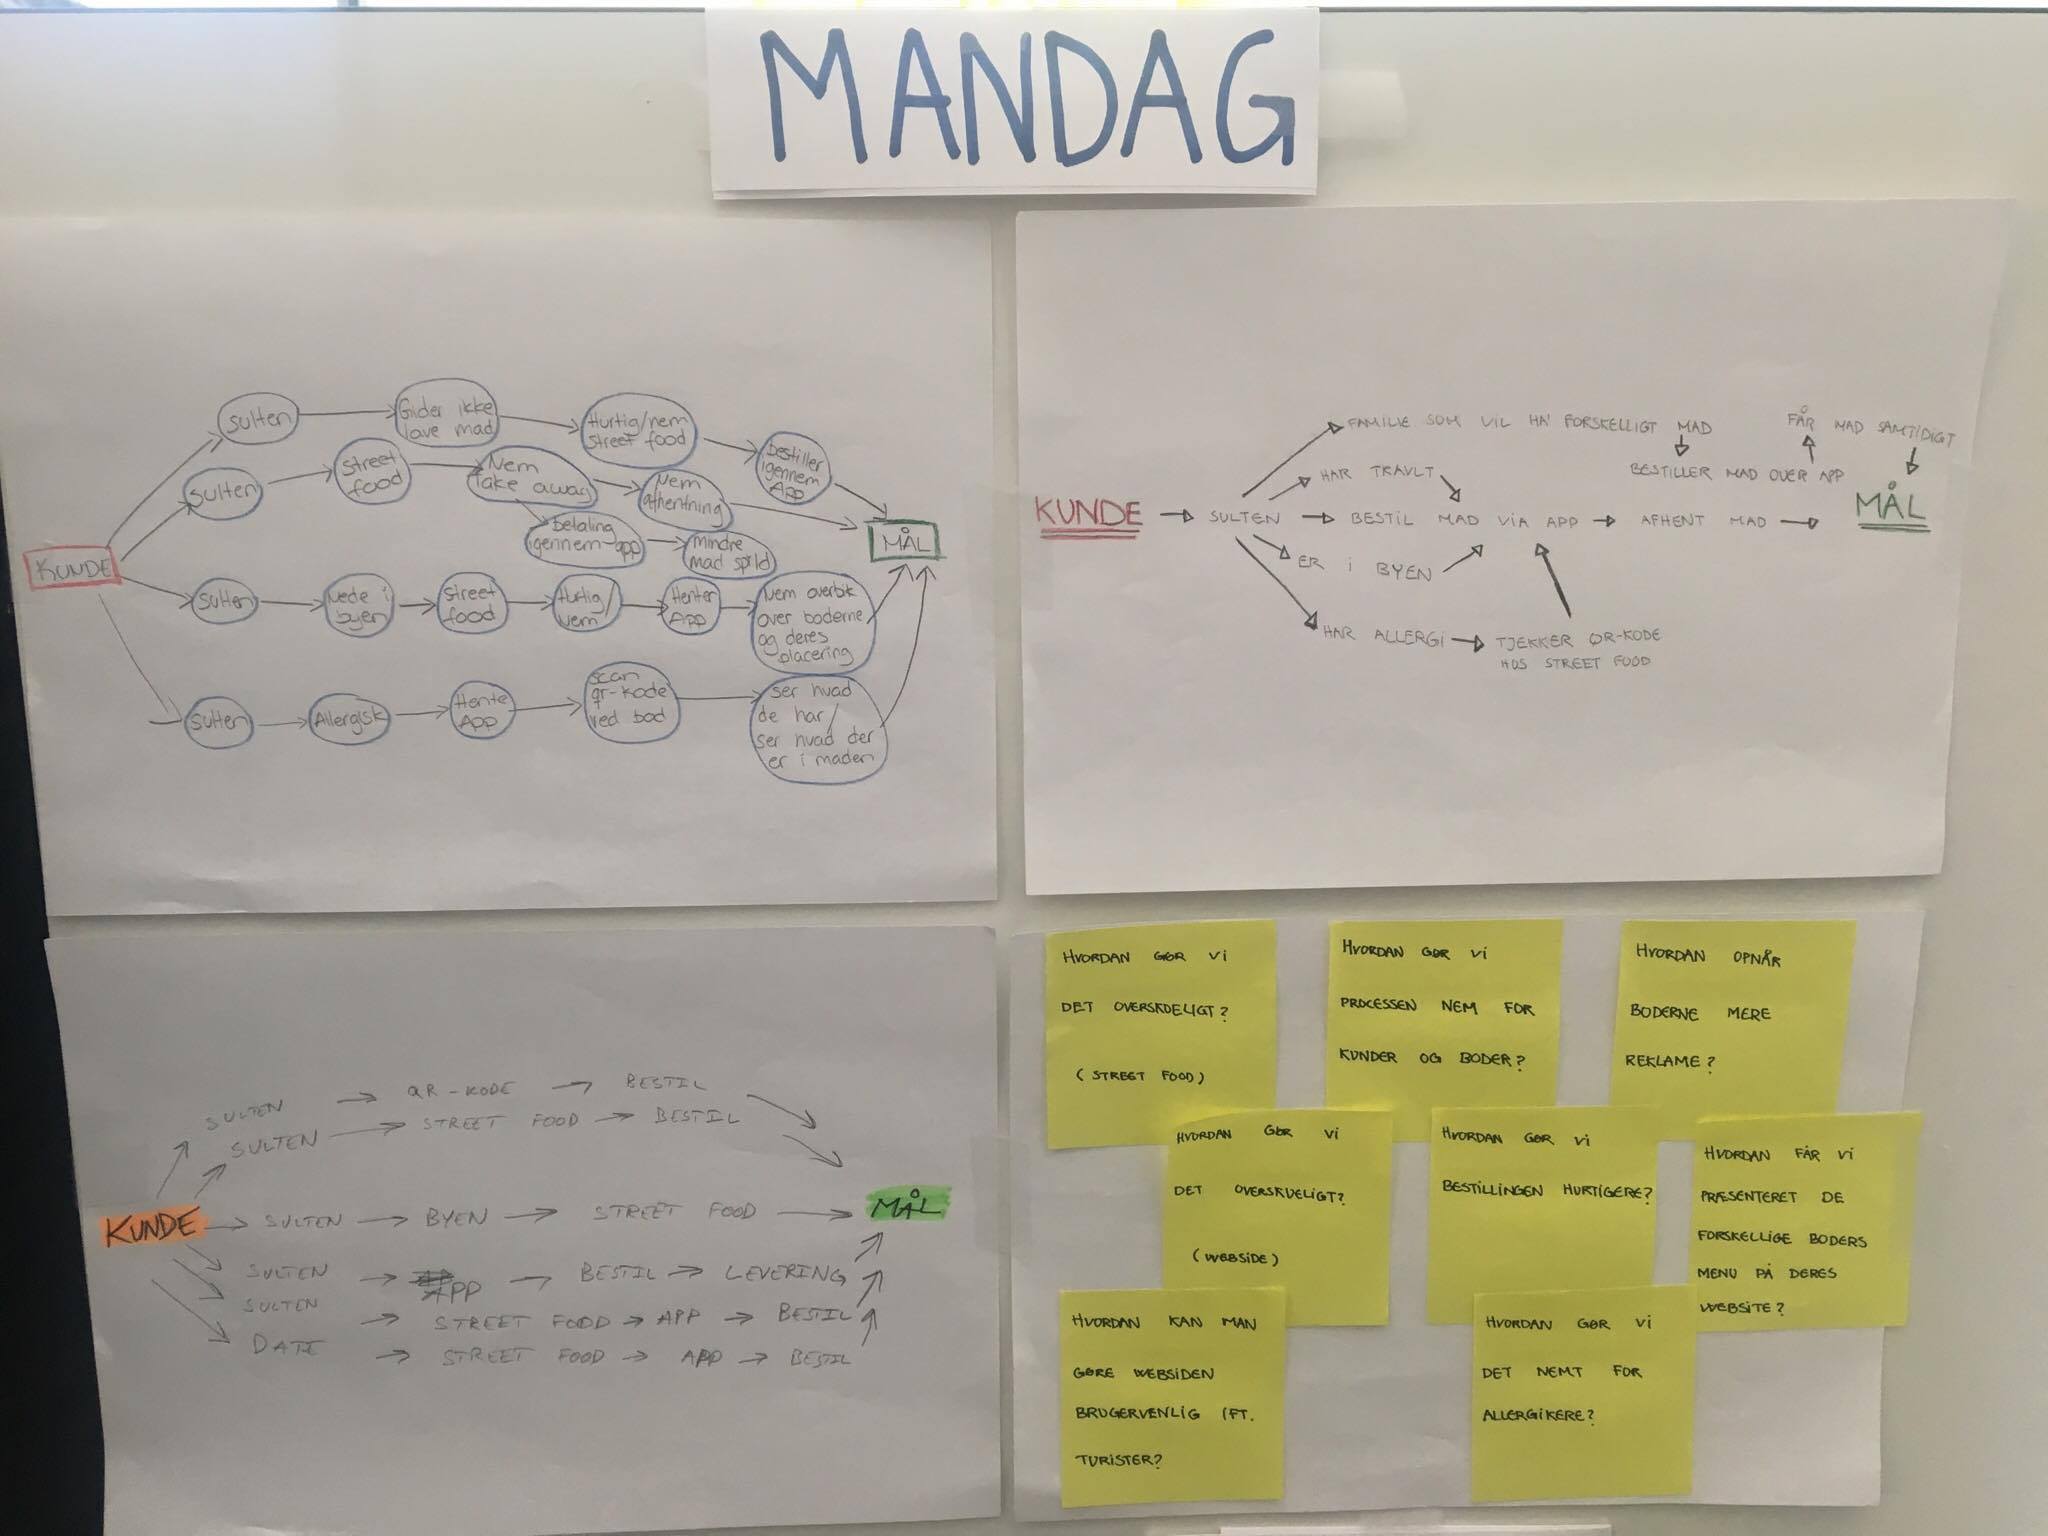 MANDAG
KUNDE
sulten
Gider ikke
lave mad
Hurtig/nem
street food
bestiller
igennem
App
sulten
street
food
Nem
Take away
Nem
afhentning
betaling
igennem app
mindre
mad spild
MÅL
sulten
nede i
byen
street
food
Hurtig/
nem
Henter
App
Nem overbik
over boderne
og deres
placering
sulten
Allergisk
Hente
App
scan
qr-kode
ved bod
ser hvad
de har/
ser hvad der
er i maden
FAMILIE SOM VIL HA' FORSKELLIGT MAD
FÅR MAD SAMTIDIGT
HAR TRAVLT
BESTILLER MAD OVER APP
KUNDE
SULTEN
BESTIL MAD VIA APP
AFHENT MAD
MÅL
ER I BYEN
HAR ALLERGI
TJEKKER QR-KODE
HOS STREET FOOD
SULTEN
QR-KODE
BESTIL
SULTEN
STREET FOOD
BESTIL
KUNDE
SULTEN
BYEN
STREET FOOD
MÅL
SULTEN
APP
BESTIL
LEVERING
SULTEN
STREET FOOD
APP
BESTIL
DATE
STREET FOOD
APP
BESTIL
HVORDAN GØR VI
DET OVERSKUELIGT?
(STREET FOOD)
HVORDAN GØR VI
PROCESSEN NEM FOR
KUNDER OG BODER?
HVORDAN OPNÅR
BODERNE MERE
REKLAME?
HVORDAN GØR VI
DET OVERSKUELIGT?
(WEBSIDE)
HVORDAN GØR VI
BESTILLINGEN HURTIGERE?
HVORDAN FÅR VI
PRÆSENTERET DE
FORSKELLIGE BODERS
MENU PÅ DERES
WEBSITE?
HVORDAN KAN MAN
GØRE WEBSIDEN
BRUGERVENLIG IFT.
TURISTER?
HVORDAN GØR VI
DET NEMT FOR
ALLERGIKERE?